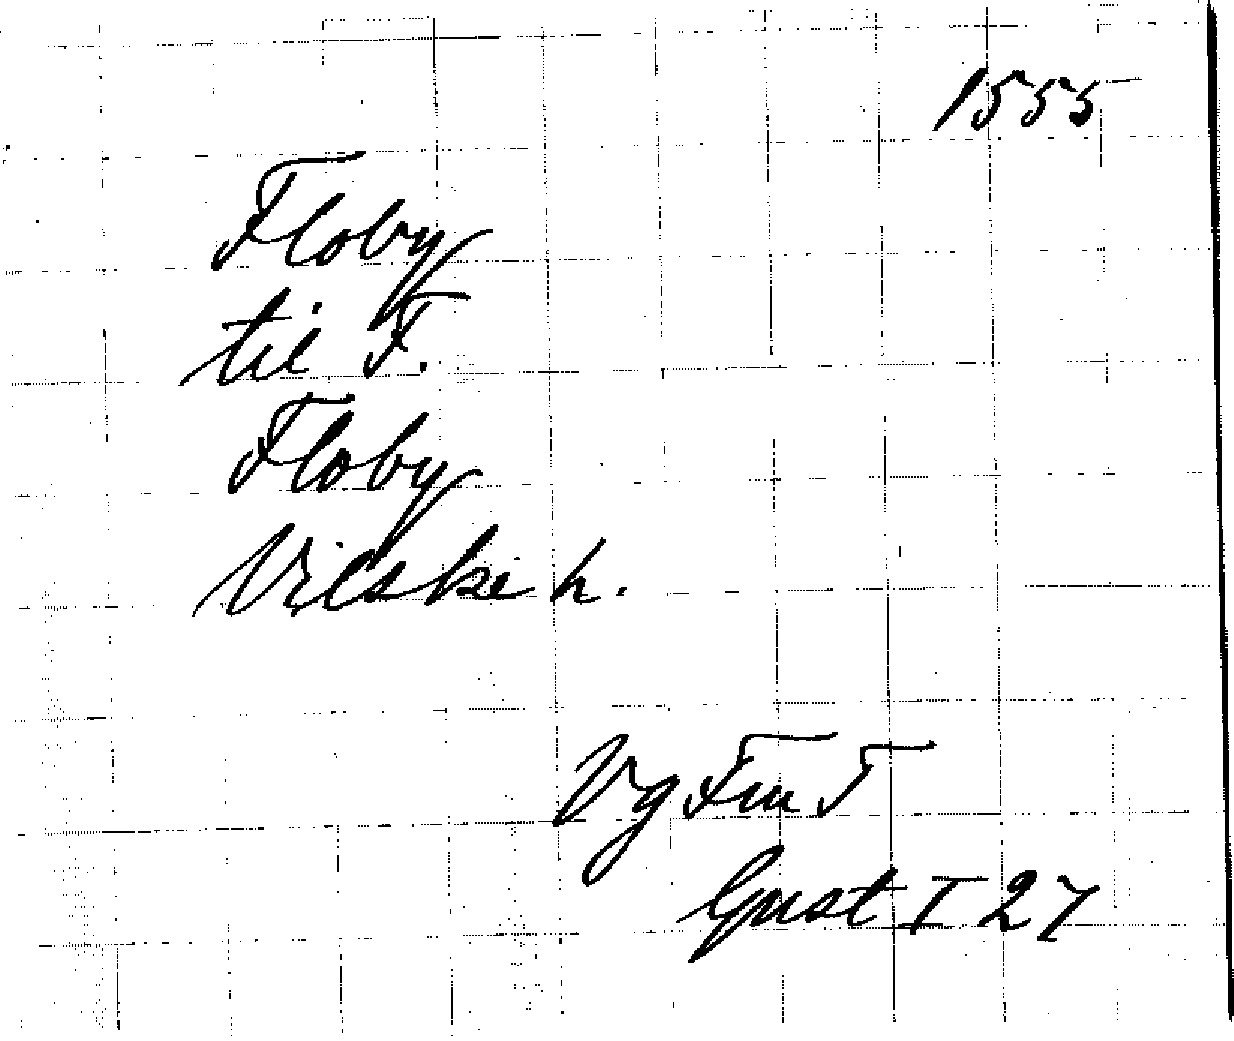 1555
Floby
till F.
Floby
Vilske h.
Vg Fm T
Gust I 27